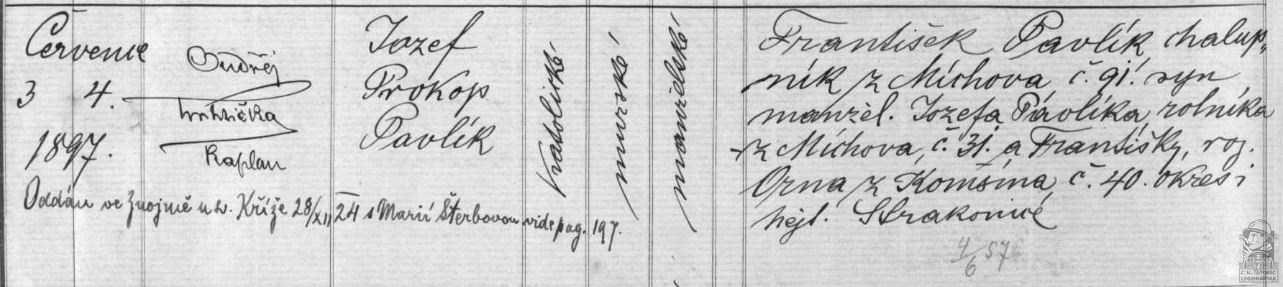 Červenec
3 4.
1897.
Ondřej
Kaplan
Jozef
Prokop
Pavlík
katolické
mužské
manželské
František Pavlík chalup-
ník z Míchova č. 91. syn
manžel. Jozefa Pavlíka rolníka
z Míchova, č. 31. a Františky, roz.
z Komšína č. 40. okres i
hejt. Strakonice
Oddán ve Znojmě u sv. Kříže 28/XII 24 s Marií Šterbovou vide pag. 197.
4/6 57